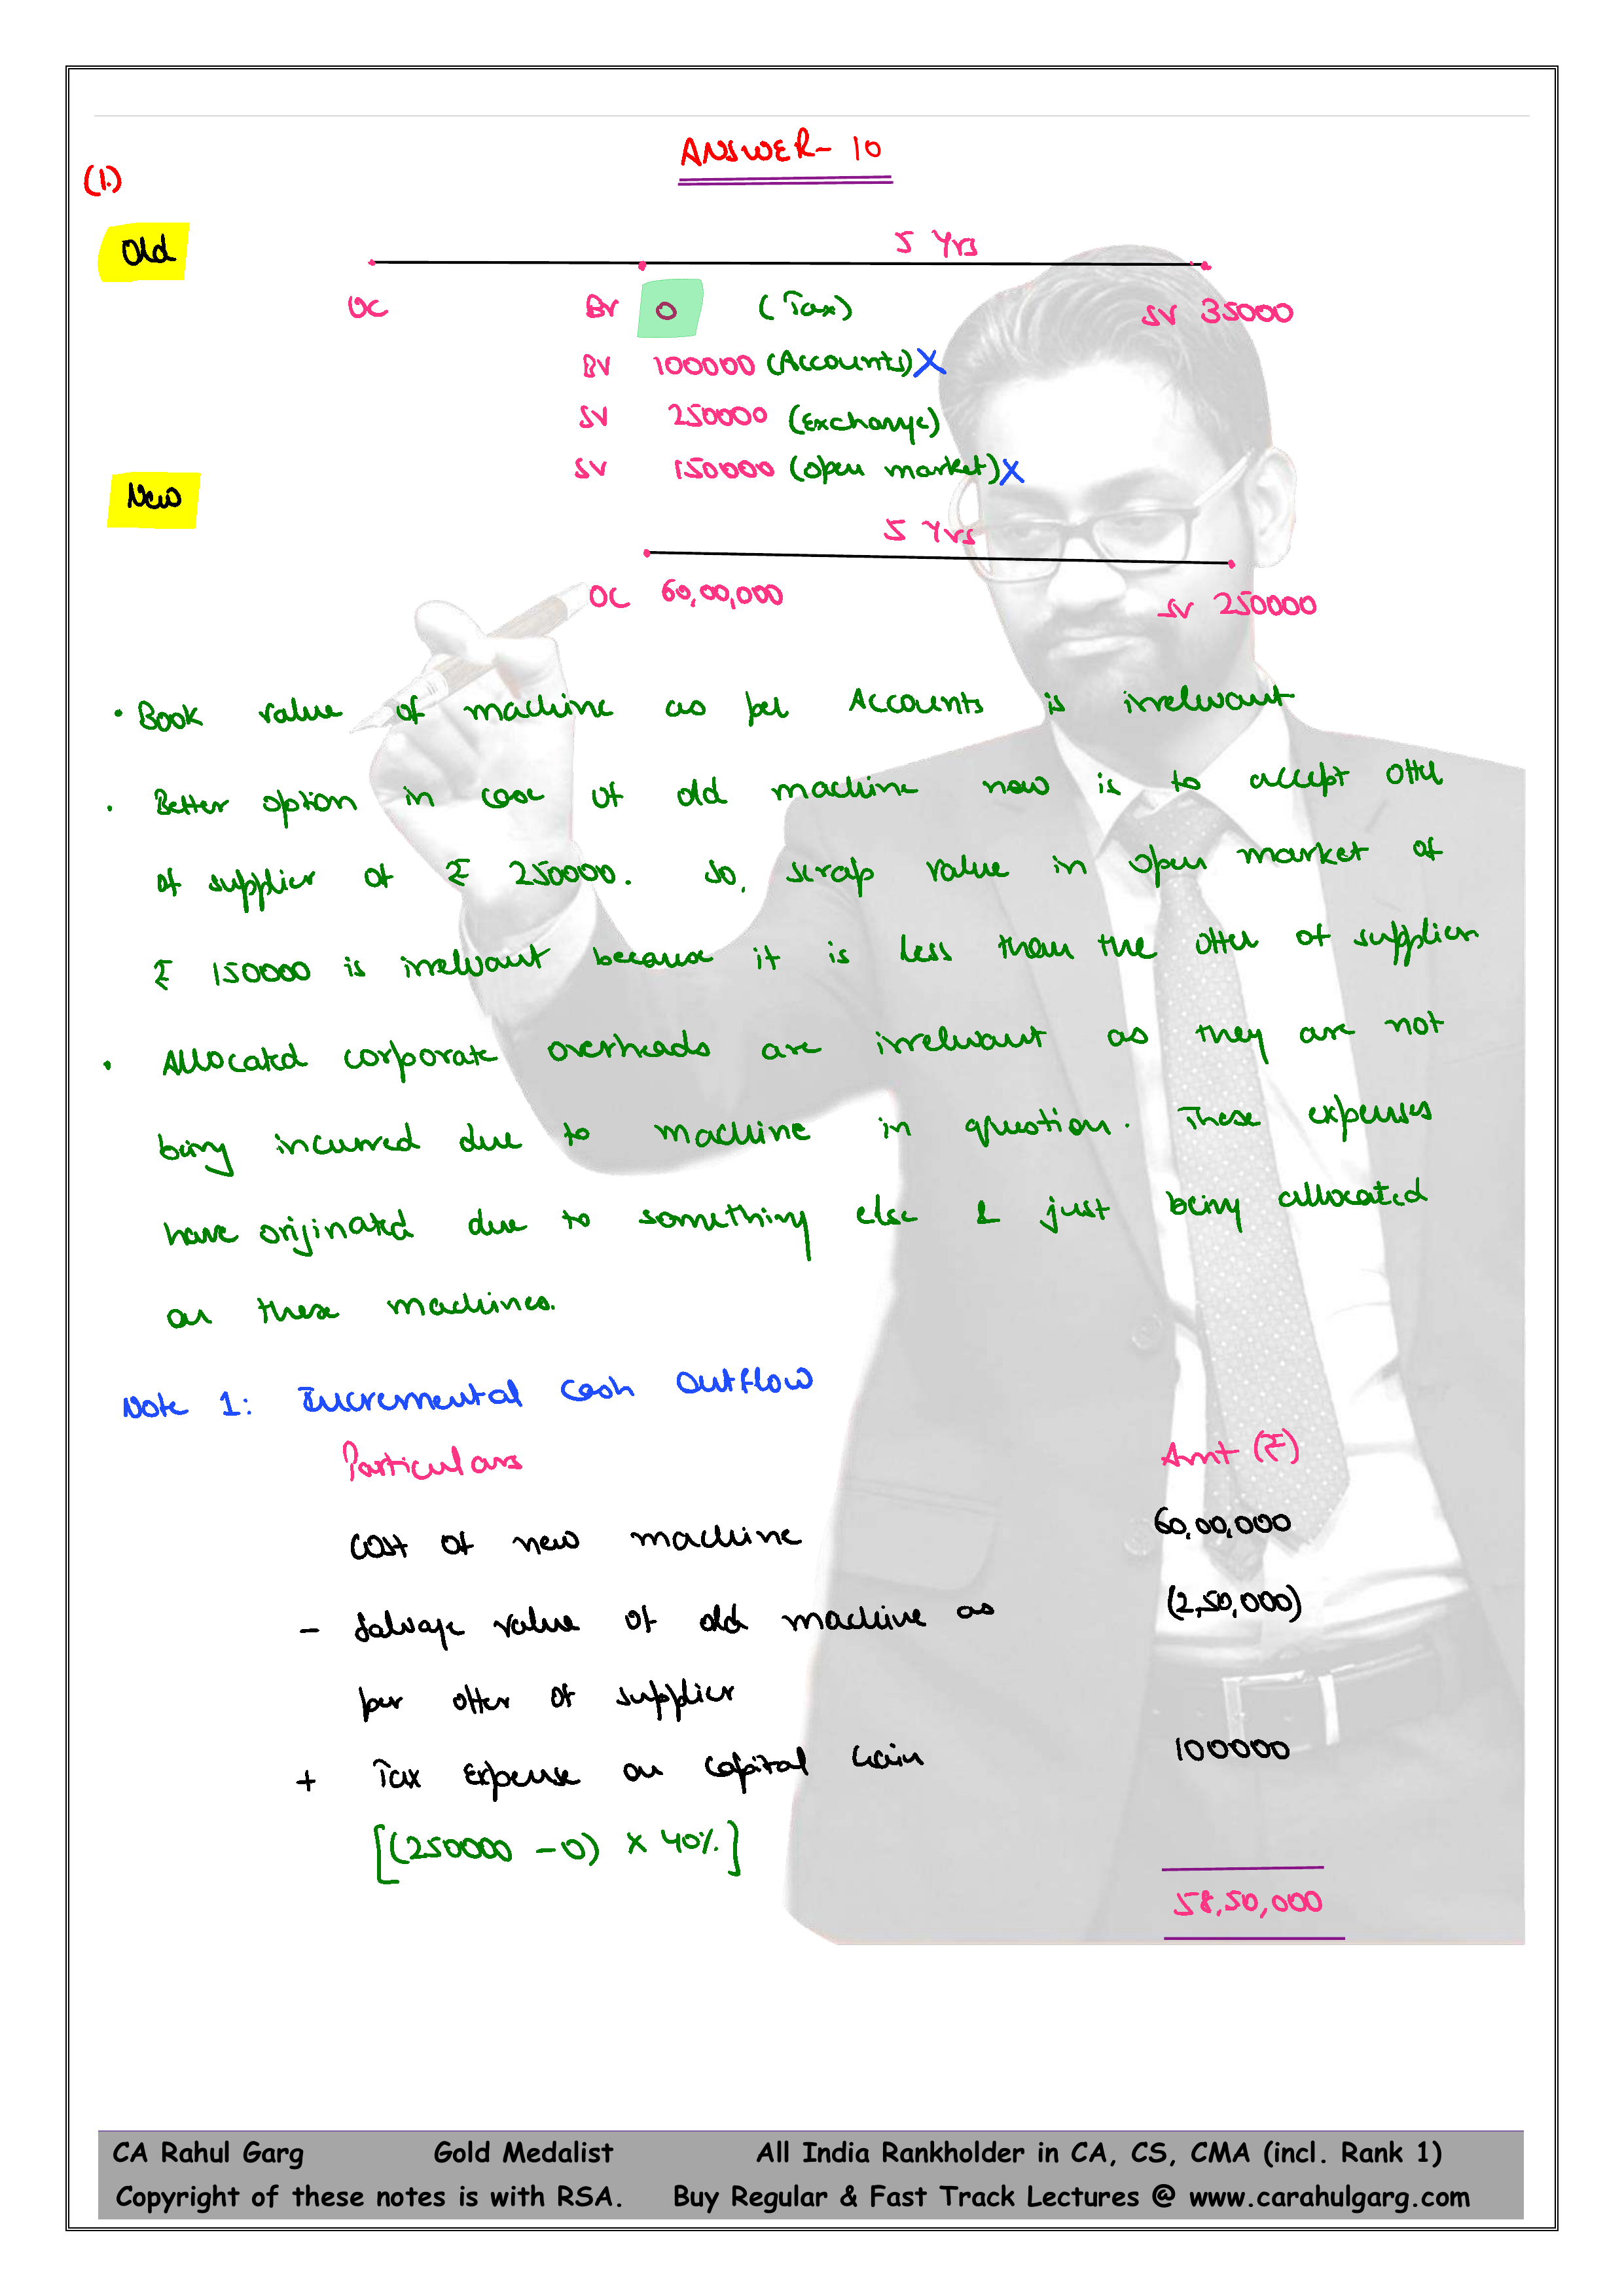 ANSWER- 10
(1.)
Old
5 Yrs
OC BV 0 (Tax) SV 35000
BV 100000 (Accounts) X
SV 250000 (Exchange)
SV 150000 (open market) X
New
5 Yrs
OC 60,00,000 SV 250000
• Book value of machine as per Accounts is irrelevant
• Better option in case of old machine now is to accept offer
of supplier of ₹ 250000. So, scrap value in open market of
₹ 150000 is irrelevant because it is less than the offer of supplier
• Allocated corporate overheads are irrelevant as they are not
being incurred due to machine in question. These expenses
have originated due to something else & just being allocated
on these machines.
Note 1: Incremental Cash Outflow
Particulars Amt (₹)
Cost of new machine 60,00,000
- Salvage value of old machine as (2,50,000)
per offer of supplier
+ Tax Expense on Capital Gain 100000
[(250000 - 0) x 40%]
58,50,000
CA Rahul Garg Gold Medalist All India Rankholder in CA, CS, CMA (incl. Rank 1)
Copyright of these notes is with RSA. Buy Regular & Fast Track Lectures @ www.carahulgarg.com